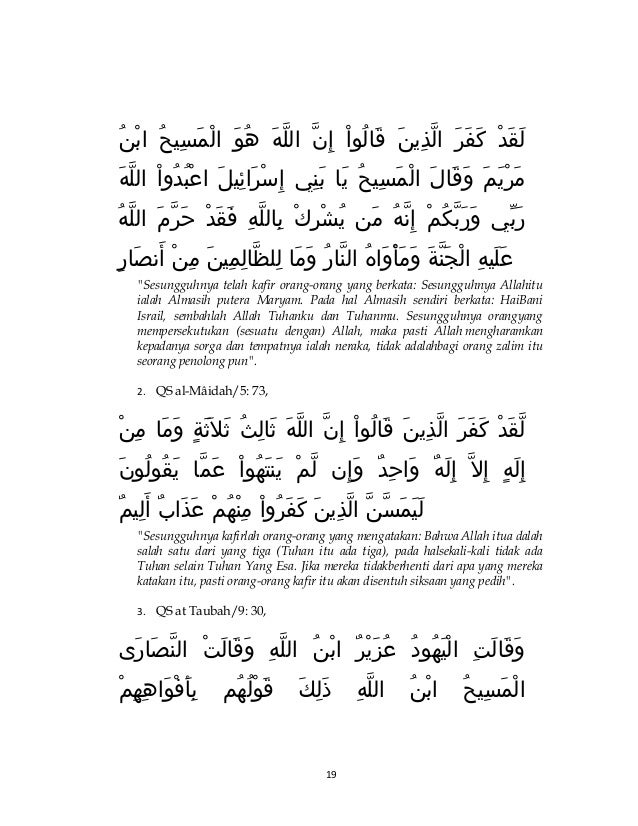 لَقَدْ كَفَرَ الَّذِينَ قَالُواْ إِنَّ اللَّهَ هُوَ الْمَسِيحُ ابْنُ
مَرْيَمَ وَقَالَ الْمَسِيحُ يَا بَنِي إِسْرَائِيلَ اعْبُدُواْ اللَّهَ
رَبِّي وَرَبَّكُمْ إِنَّهُ مَن يُشْرِكْ بِاللَّهِ فَقَدْ حَرَّمَ اللَّهُ
عَلَيهِ الْجَنَّةَ وَمَأْوَاهُ النَّارُ وَمَا لِلظَّالِمِينَ مِنْ أَنصَارٍ
"Sesungguhnya telah kafir orang-orang yang berkata: Sesungguhnya Allahitu
ialah Almasih putera Maryam. Pada hal Almasih sendiri berkata: HaiBani
Israil, sembahlah Allah Tuhanku dan Tuhanmu. Sesungguhnya orangyang
mempersekutukan (sesuatu dengan) Allah, maka pasti Allah mengharamkan
kepadanya sorga dan tempatnya ialah neraka, tidak adalahbagi orang zalim itu
seorang penolong pun".
2. QS al-Mâidah/5: 73,
لَّقَدْ كَفَرَ الَّذِينَ قَالُواْ إِنَّ اللَّهَ ثَالِثُ ثَلاَثَةٍ وَمَا مِنْ
إِلَهٍ إِلاَّ إِلَهٌ وَاحِدٌ وَإِن لَّمْ يَنتَهُواْ عَمَّا يَقُولُونَ
لَيَمَسَّنَّ الَّذِينَ كَفَرُواْ مِنْهُمْ عَذَابٌ أَلِيمٌ
"Sesungguhnya kafirlah orang-orang yang mengatakan: Bahwa Allah itua dalah
salah satu dari yang tiga (Tuhan itu ada tiga), pada halsekali-kali tidak ada
Tuhan selain Tuhan Yang Esa. Jika mereka tidakberhenti dari apa yang mereka
katakan itu, pasti orang-orang kafir itu akan disentuh siksaan yang pedih".
3. QS at Taubah/9: 30,
وَقَالَتِ الْيَهُودُ عُزَيْرٌ ابْنُ اللَّهِ وَقَالَتْ النَّصَارَى
الْمَسِيحُ ابْنُ اللَّهِ ذَلِكَ قَوْلُهُم بِأَفْوَاهِهِمْ
19